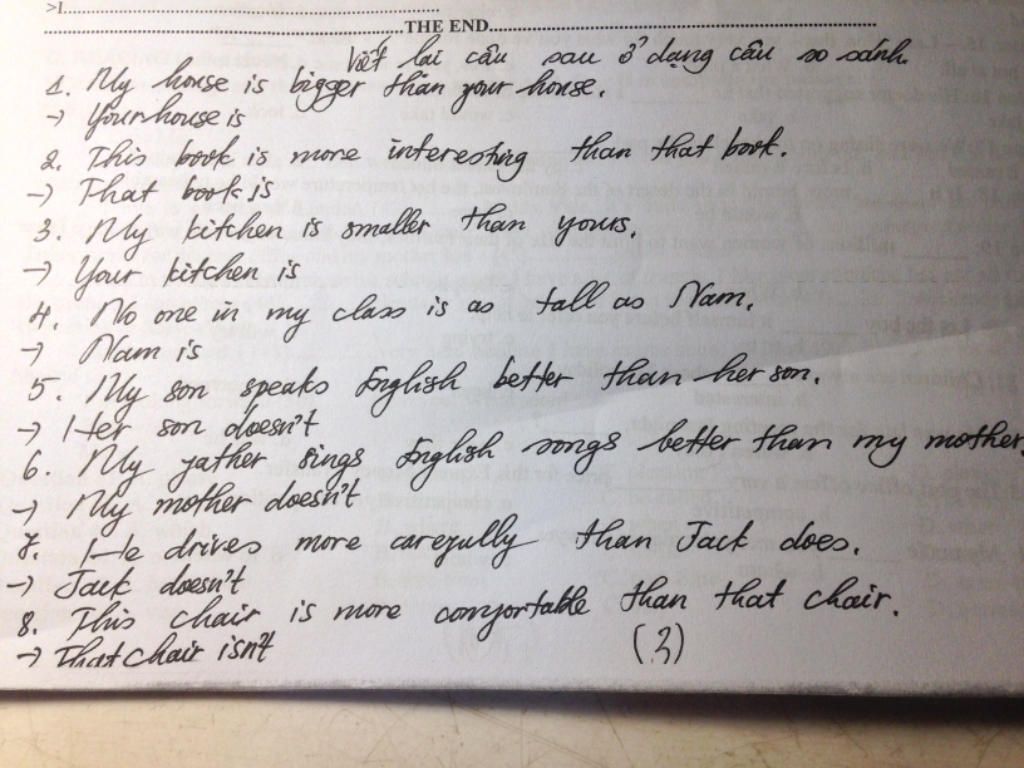 >I..........................................................................................
..........................................................................THE END..........................................................................................
Viết lại câu sau ở dạng câu so sánh.
1. My house is bigger than your house.
→ Your house is
2. This book is more interesting than that book.
→ That book is
3. My kitchen is smaller than yours.
→ Your kitchen is
4. No one in my class is as tall as Nam.
→ Nam is
5. My son speaks English better than her son.
→ Her son doesn't
6. My father sings English songs better than my mother.
→ My mother doesn't
7. He drives more carefully than Jack does.
→ Jack doesn't
8. This chair is more comfortable than that chair.
→ That chair isn't
(3)